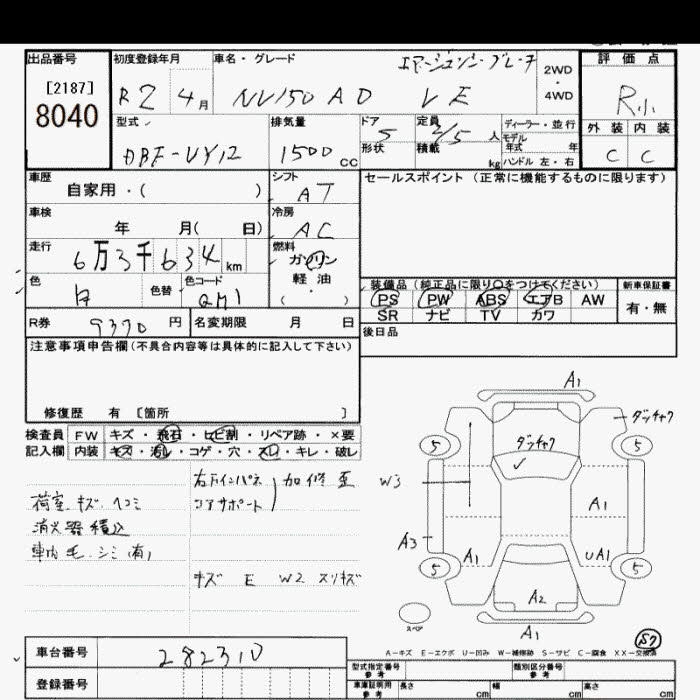 出品番号 初度登録年月 車名・グレード エマージェンシー・ブレーキ 2WD・4WD 評価点
[2187]
8040
R2 4月 NV150 AD VE R小
型式 排気量 ドア 定員 ディーラー・並行 外装 内装
DBF-VY12 1500cc 5 2/5人 モデル年式 年 C C
形状 積載 kg ハンドル 左・右
車歴 シフト セールスポイント (正常に機能するものに限ります)
自家用・( ) AT
車検 冷房
年 月( 日) AC
走行 燃料
6万3千634km ガソリン
軽油
( ・ )
色 色替 色コード 装備品 (純正品に限り○をつけてください) 新車保証書
白 QM1 PS PW ABS エアB AW 有・無
SR ナビ TV カワ
R券 9370円 名変期限 月 日 後日品
注意事項申告欄 (不具合内容等は具体的に記入して下さい)
修復歴 有 [箇所 ]
検査員 FW キズ・飛石・ヒビ割・リペア跡・×要
記入欄 内装 キズ・汚レ・コゲ・穴・スレ・キレ・破レ
荷室 キズ、ヘコミ
消火器積込
車内 毛、シミ(有)
コアサポート
加修歪
キズ E W2 スリキズ
A1
ダッチャク
5 5
ダッチャク
W3
A1
A3
A1 UA1
5 5
A2
スペア
A1
S7
A-キズ E-エクボ U-凹み W-補修跡 S-サビ C-腐食 XX-交換済
車台番号 282310
登録番号
型式指定番号 参考 類別区分番号 参考
車庫証明用 参考 長さ cm 幅 cm 高さ cm